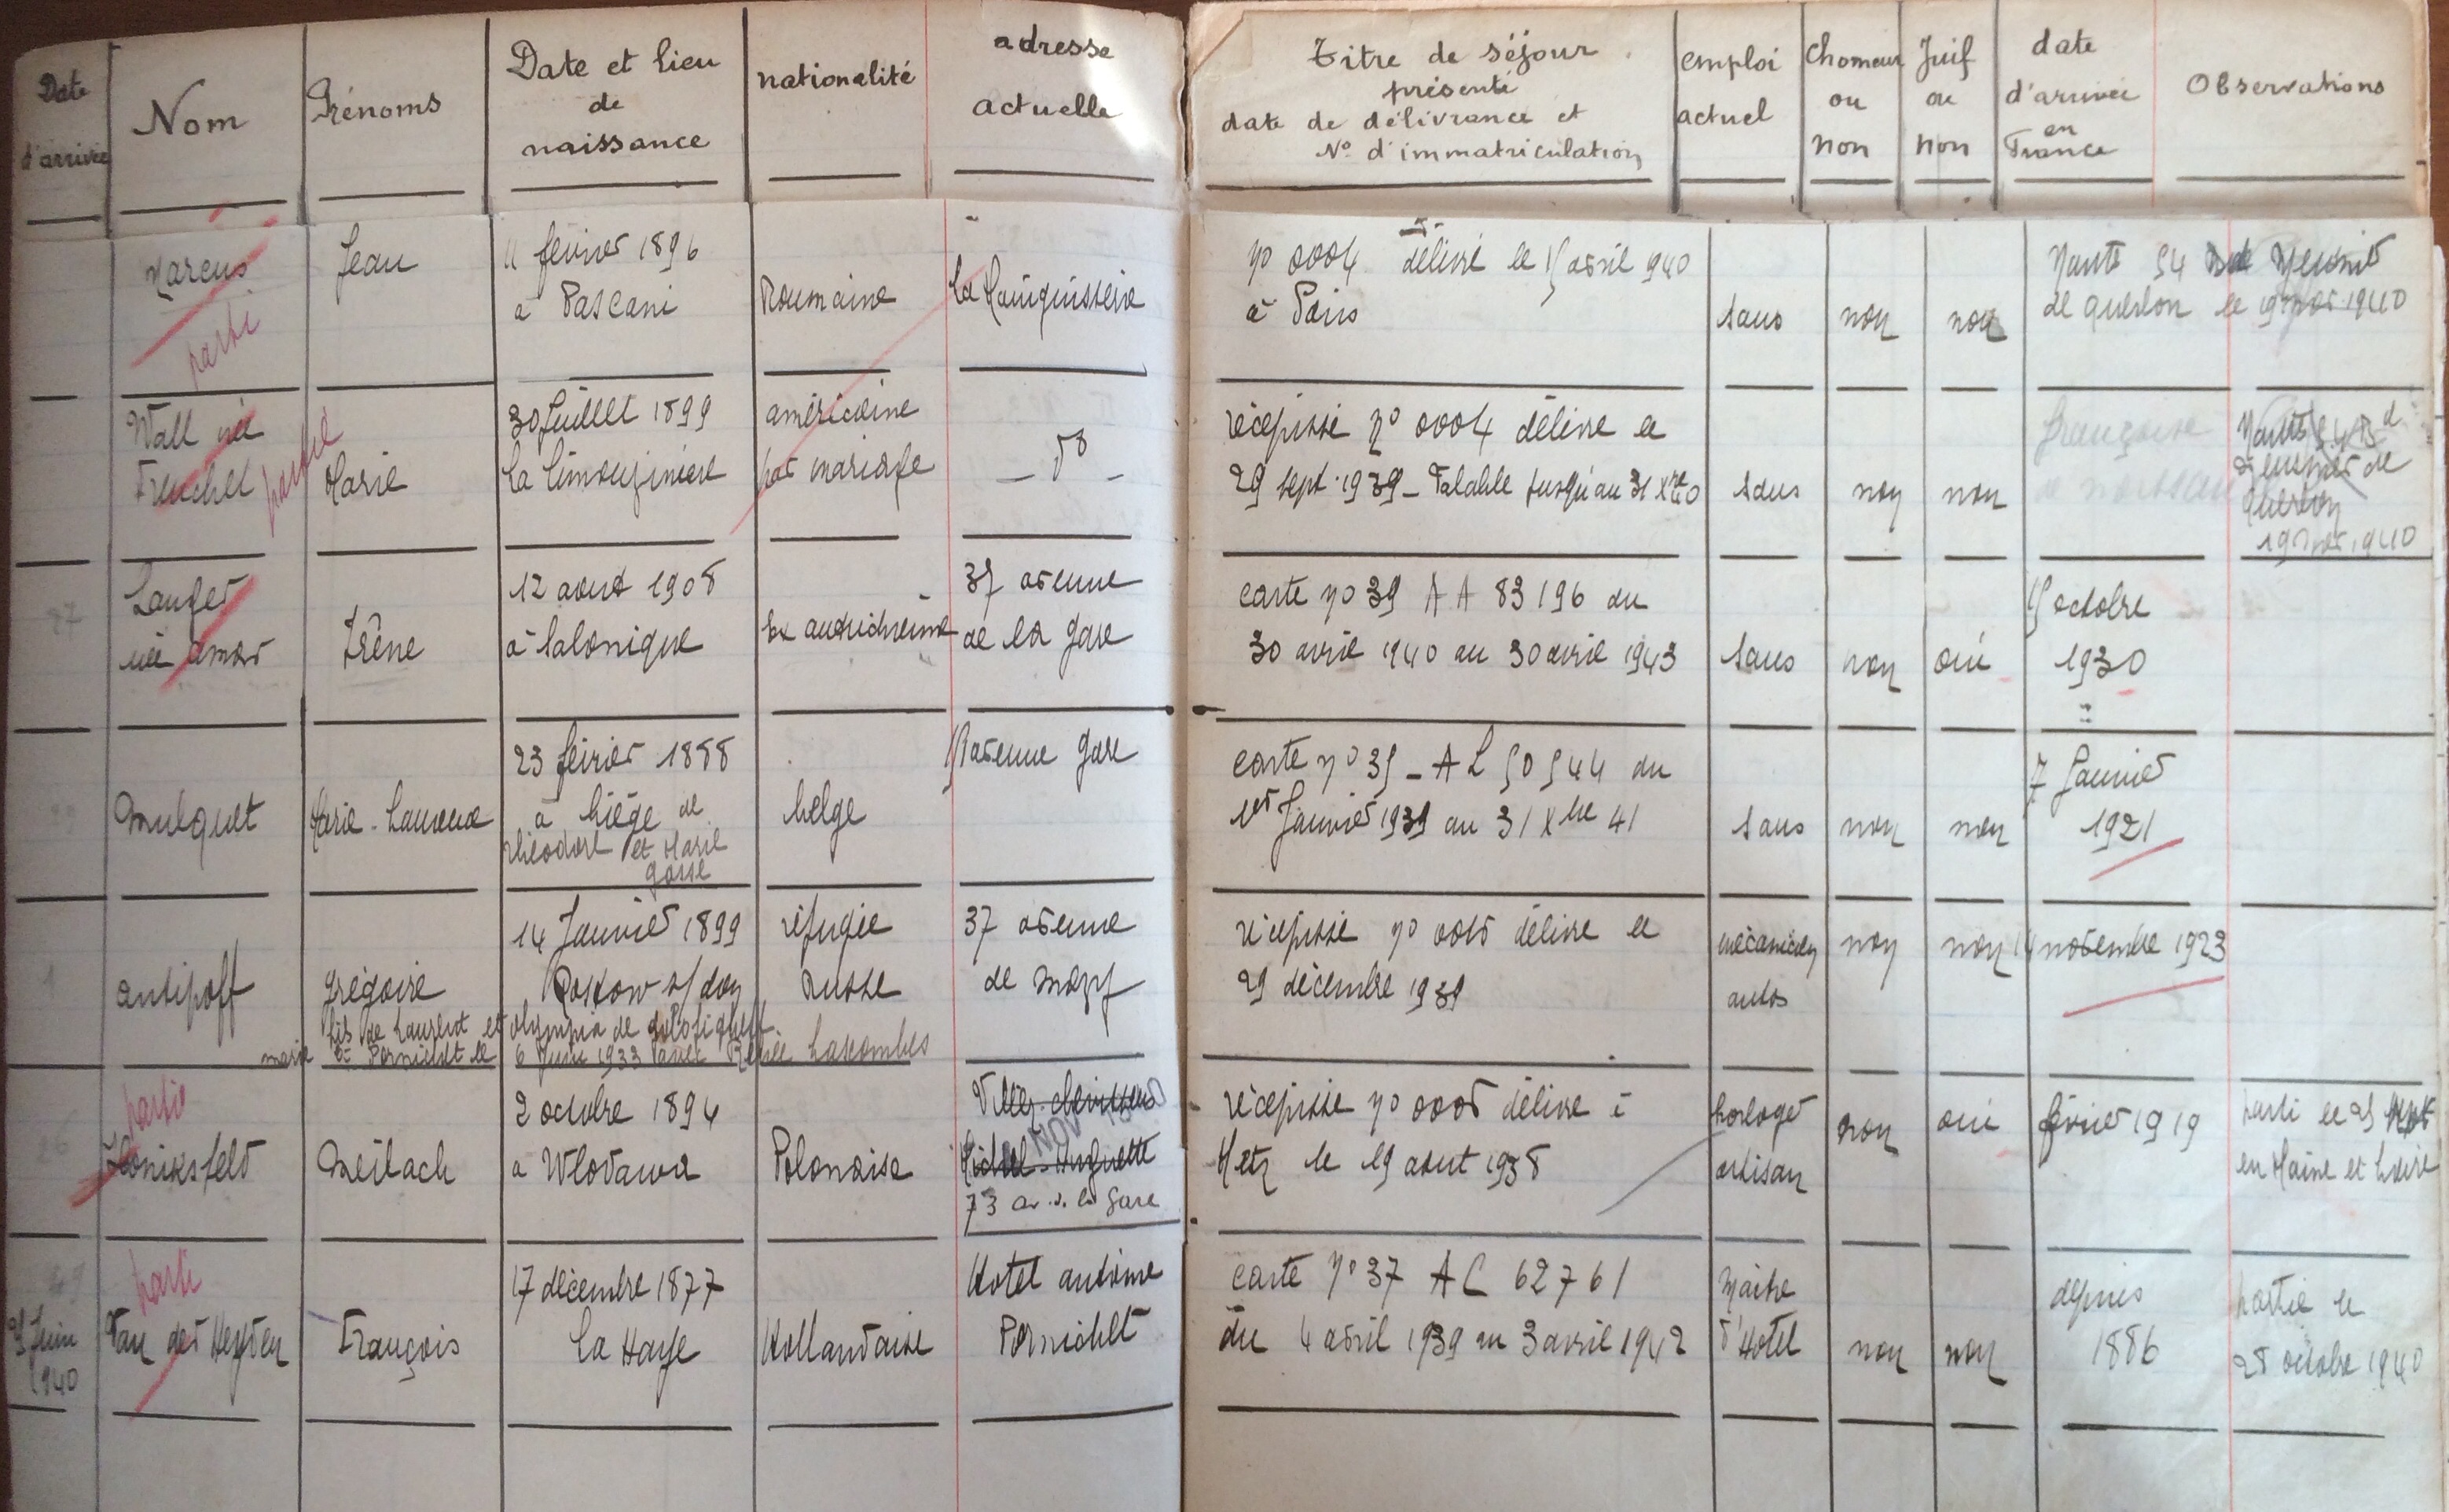 Date d'arrivée
Nom
Prénoms
Date et lieu
de
naissance
nationalité
adresse
actuelle
Titre de séjour
présenté
date de délivrance et
N° d'immatriculation
emploi
actuel
Chomeur
ou
non
Juif
ou
non
date
d'arrivée
en
France
Observations
Marcus
parti
Jean
11 février 1896
à Pascani
Roumaine
n° 0004 délivré le 15 avril 1940
à Paris
sans
non
non
Nante 54 Bd Meusnier
de Querlon le 19 nov. 1940
Wall née
Trenchet
partie
Marie
30 Juillet 1899
La Limouzinière
américaine
par mariage
- d° -
récépissé n° 0004 délivré le
29 sept. 1939 - Valable jusqu'au 31 Xbre 40
sans
non
non
française
Nantes 54 Bd
Meusnier de
Querlon
19 nov. 1940
87
Langer
née Amar
Irène
12 aout 1908
à Salonique
Ex autrichienne
37 avenue
de la Gare
carte n° 39 AA 83196 du
30 avril 1940 au 30 avril 1943
sans
non
oui
15 octobre
1930
Mulquet
Marie-Laurence
23 février 1888
à Liège de
Théodore et Marie
Gosse
belge
avenue Gare
carte n° 35 - AL 50544 du
1er Janvier 1939 au 31 Xbre 41
sans
non
non
7 Janvier
1921
1
Antipoff
Grégoire
14 Janvier 1899
Rostow s/ don
réfugié
russe
37 avenue
de Mazy
récépissé n° 0015 délivré le
29 décembre 1939
mécanicien
autos
non
non
14 novembre 1923
fils de Laurent et Olympia de
marié à Pornichet le 6 Juin 1933 avec Renée Lascombes
parti
Honiksfeld
Meilach
2 octobre 1894
à Wlodawa
Polonaise
Villa
Michel-Huguette
NOV
73 av. de la Gare
récépissé n° 0008 délivré à
Metz le 19 aout 1938
horloger
artisan
non
oui
février 1919
parti le 25 sept
en Maine et Loire
parti
Juin
1940
Van der Heyden
François
17 décembre 1877
La Haye
Hollandaise
Hotel antoine
Pornichet
carte n° 37 AC 62761
du 4 avril 1939 au 3 avril 1942
Maitre
d'Hotel
non
non
depuis
1886
partie le
28 octobre 1940